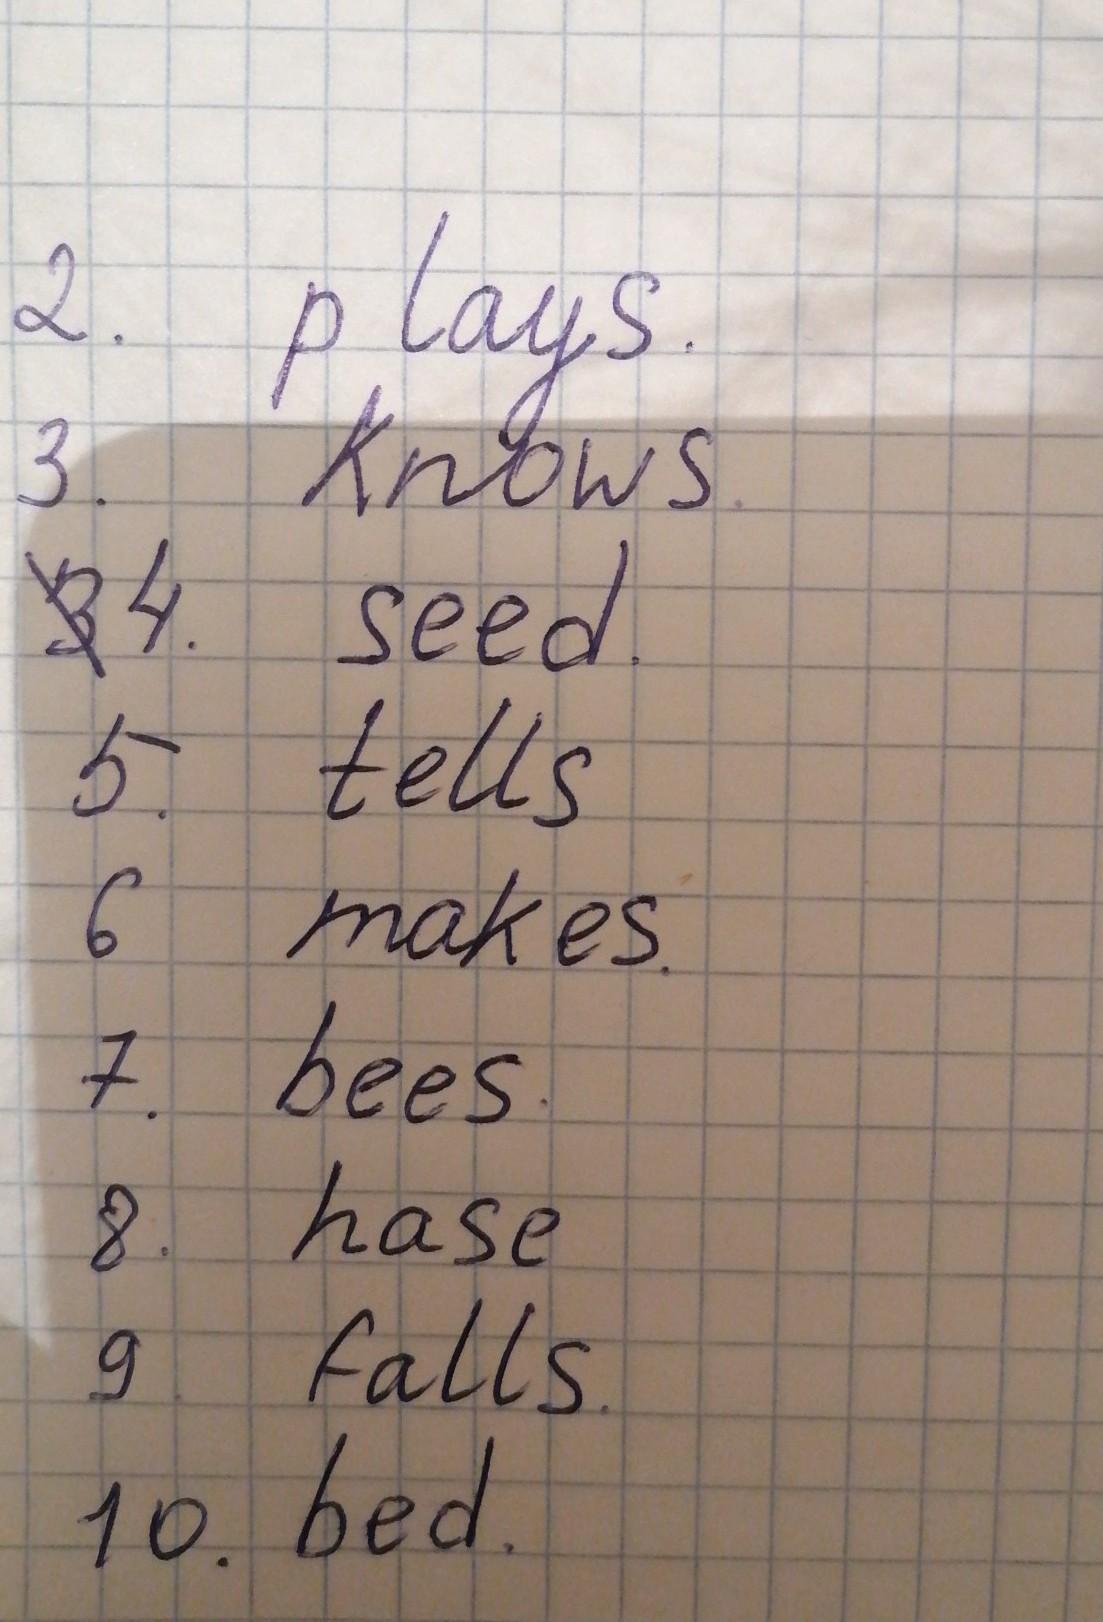 2. plays.
3. knows.
4. seed.
5. tells
6 makes.
7. bees.
8. hase
9. falls.
10. bed.